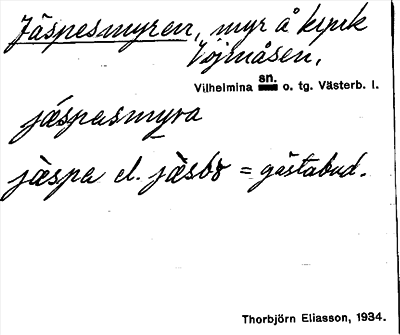 Jäspesmyren, myr å krpnk
Vojmåsen,
Vilhelmina sn. o. tg. Västerb. l.
jäspasmyra
jäspa el. jäsbo = gästabud.
Thorbjörn Eliasson, 1934.